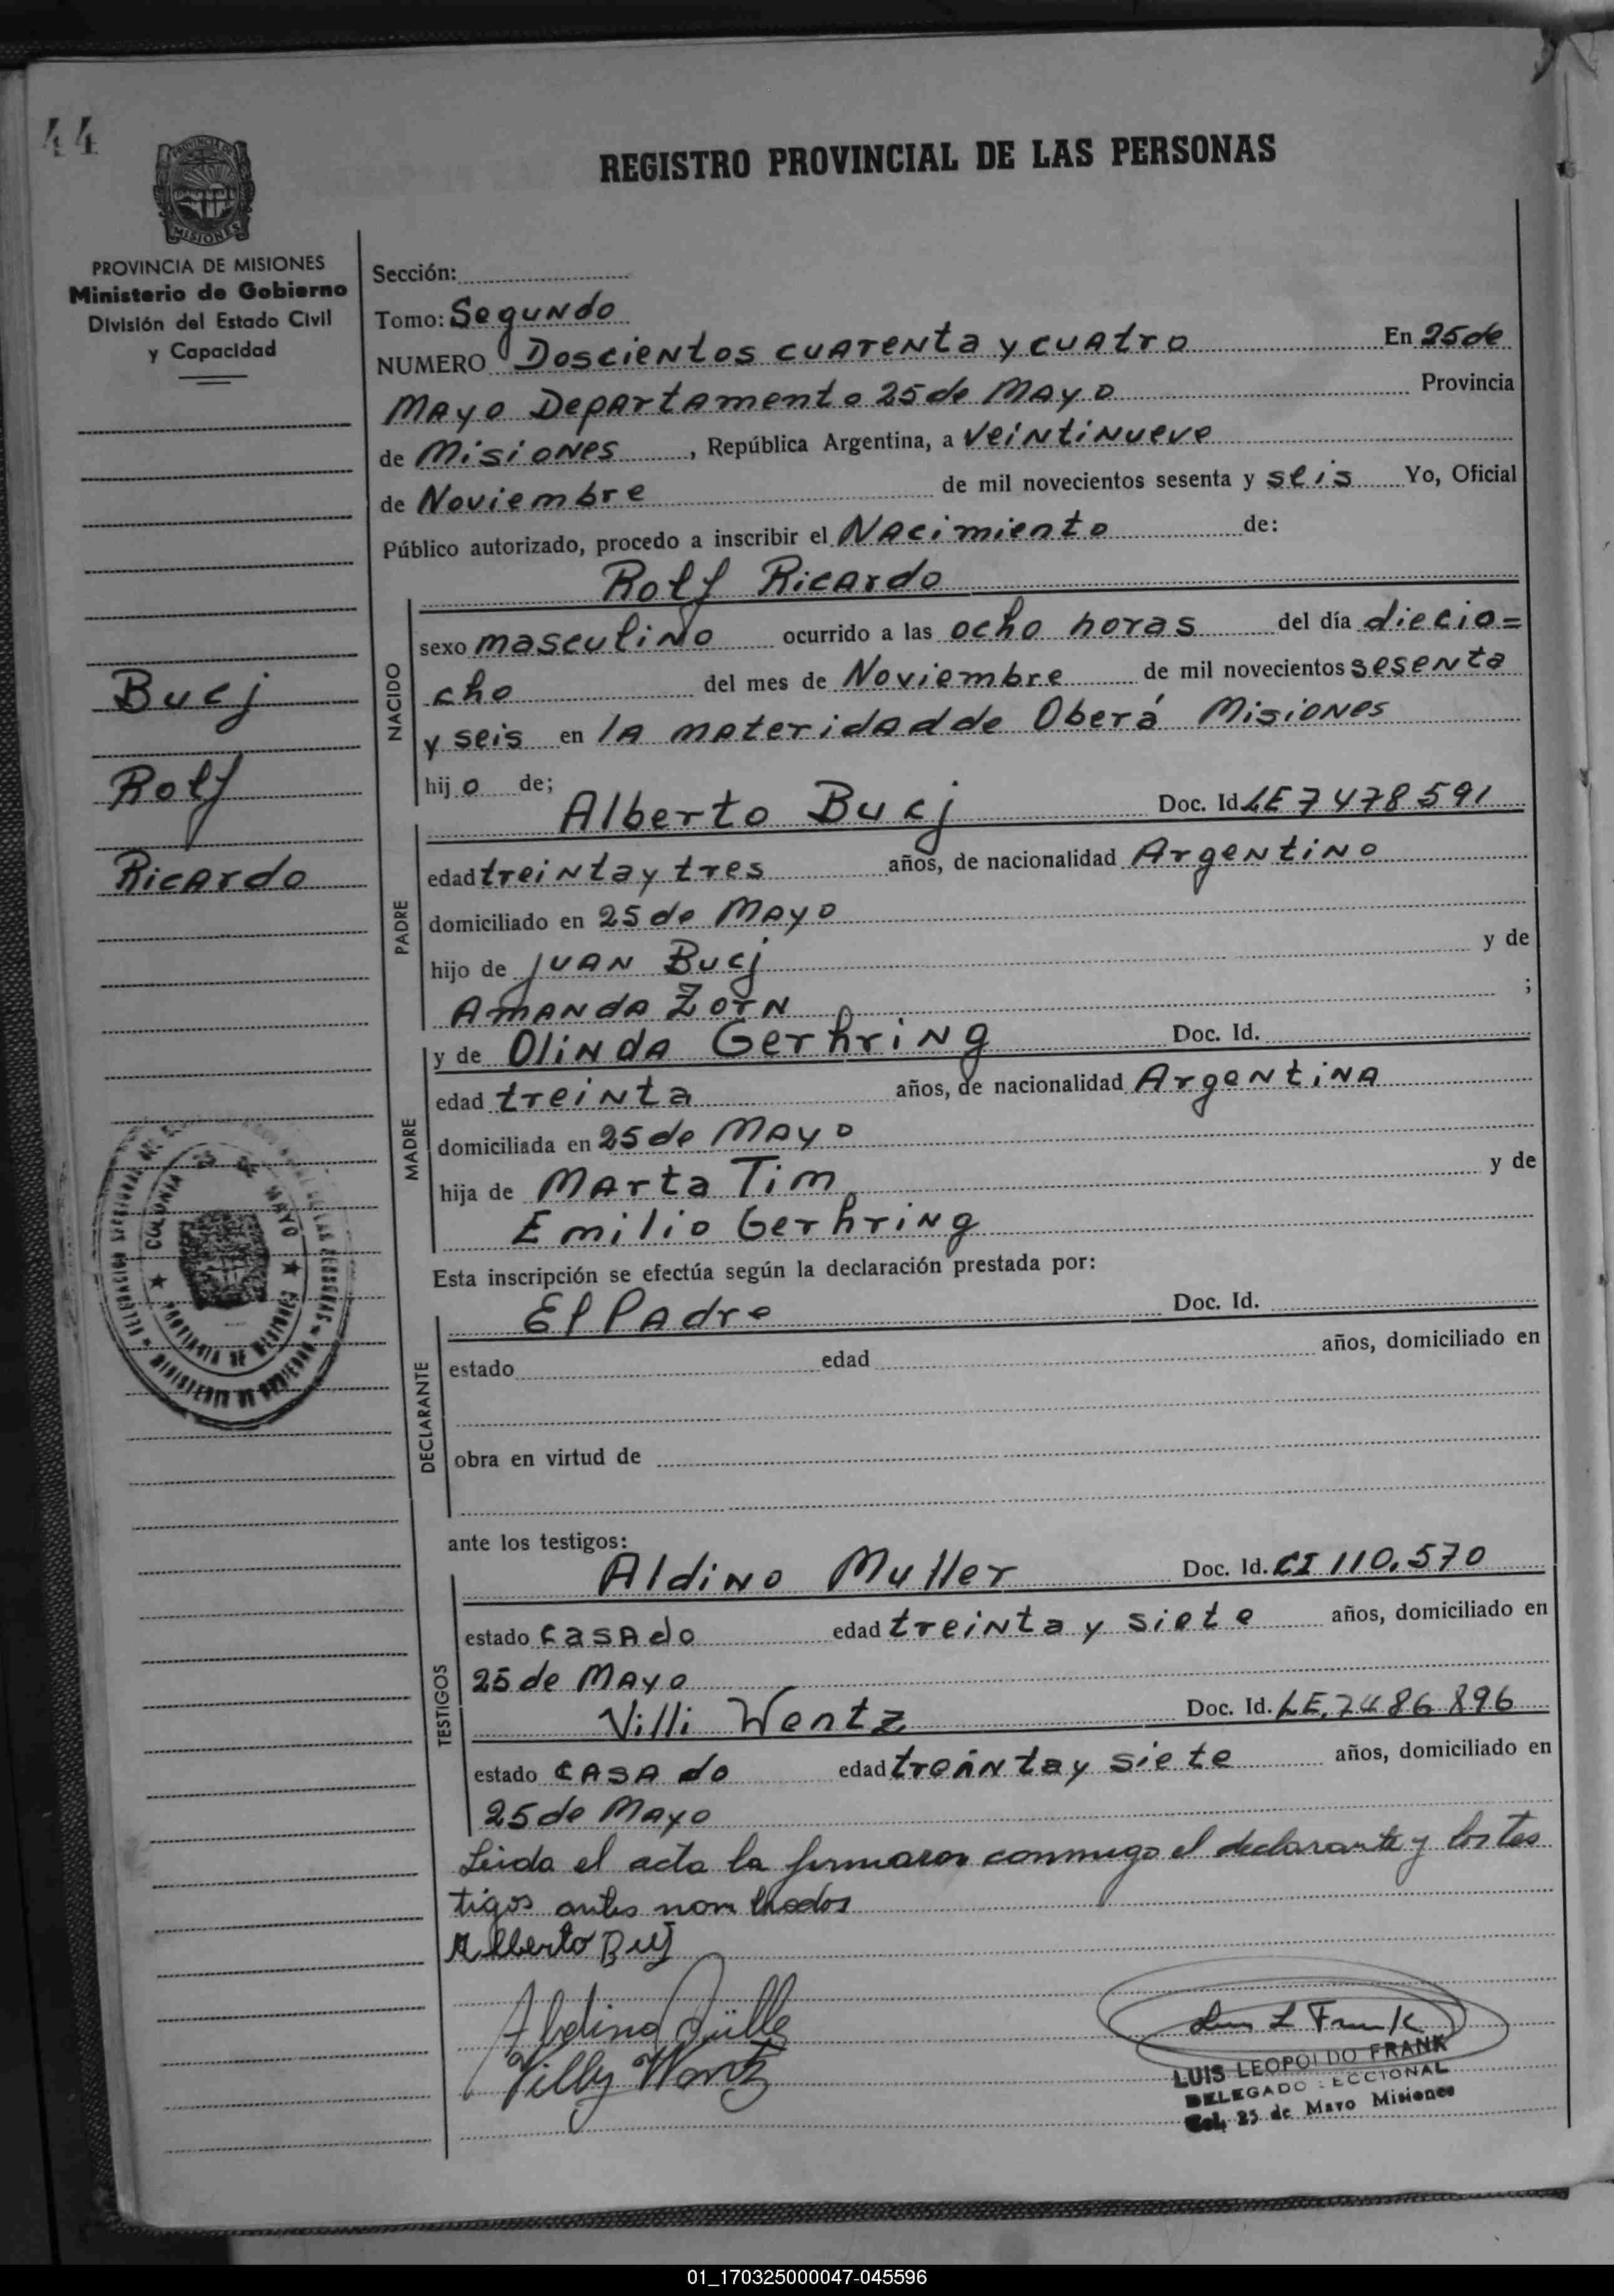 44
REGISTRO PROVINCIAL DE LAS PERSONAS
PROVINCIA DE MISIONES
MISIONES
PROVINCIA DE MISIONES
Ministerio de Gobierno
División del Estado Civil
y Capacidad
Bucj
Rolf
Ricardo
Sección:
Tomo: Segundo
NUMERO Doscientos cuarenta y cuatro En 25 de
Mayo Departamento 25 de Mayo Provincia
de Misiones, República Argentina, a veintinueve
de Noviembre de mil novecientos sesenta y seis Yo, Oficial
Público autorizado, procedo a inscribir el Nacimiento de:
Rolf Ricardo
NACIDO
sexo masculino ocurrido a las ocho horas del día diecio=
cho del mes de Noviembre de mil novecientos sesenta
y seis en la materidad de Oberá Misiones
hijo de;
Alberto Bucj Doc. Id. LE 7478591
PADRE
edad treinta y tres años, de nacionalidad Argentino
domiciliado en 25 de Mayo
hijo de Juan Bucj y de
Amanda Zorn ;
y de Olinda Gerhring Doc. Id.
MADRE
edad treinta años, de nacionalidad Argentina
domiciliada en 25 de Mayo
hija de Marta Tim y de
Emilio Gerhring
Esta inscripción se efectúa según la declaración prestada por:
El Padre Doc. Id.
DECLARANTE
estado edad años, domiciliado en
obra en virtud de
ante los testigos:
Aldino Muller Doc. Id. CI 110.570
TESTIGOS
estado casado edad treinta y siete años, domiciliado en
25 de Mayo
Villi Wentz Doc. Id. LE. 7486896
estado casado edad treinta y siete años, domiciliado en
25 de Mayo
Leida el acta la firmaron conmigo el declarante y los tes
tigos antes nombrados
Alberto Bucj
Aldino Müller
Villy Wentz
Luis L Frank
LUIS LEOPOLDO FRANK
DELEGADO SECCIONAL
Col. 25 de Mayo Misiones
COLONIA 25 DE MAYO
PROVINCIA DE MISIONES
MINISTERIO DE GOBIERNO
01_170325000047-045596